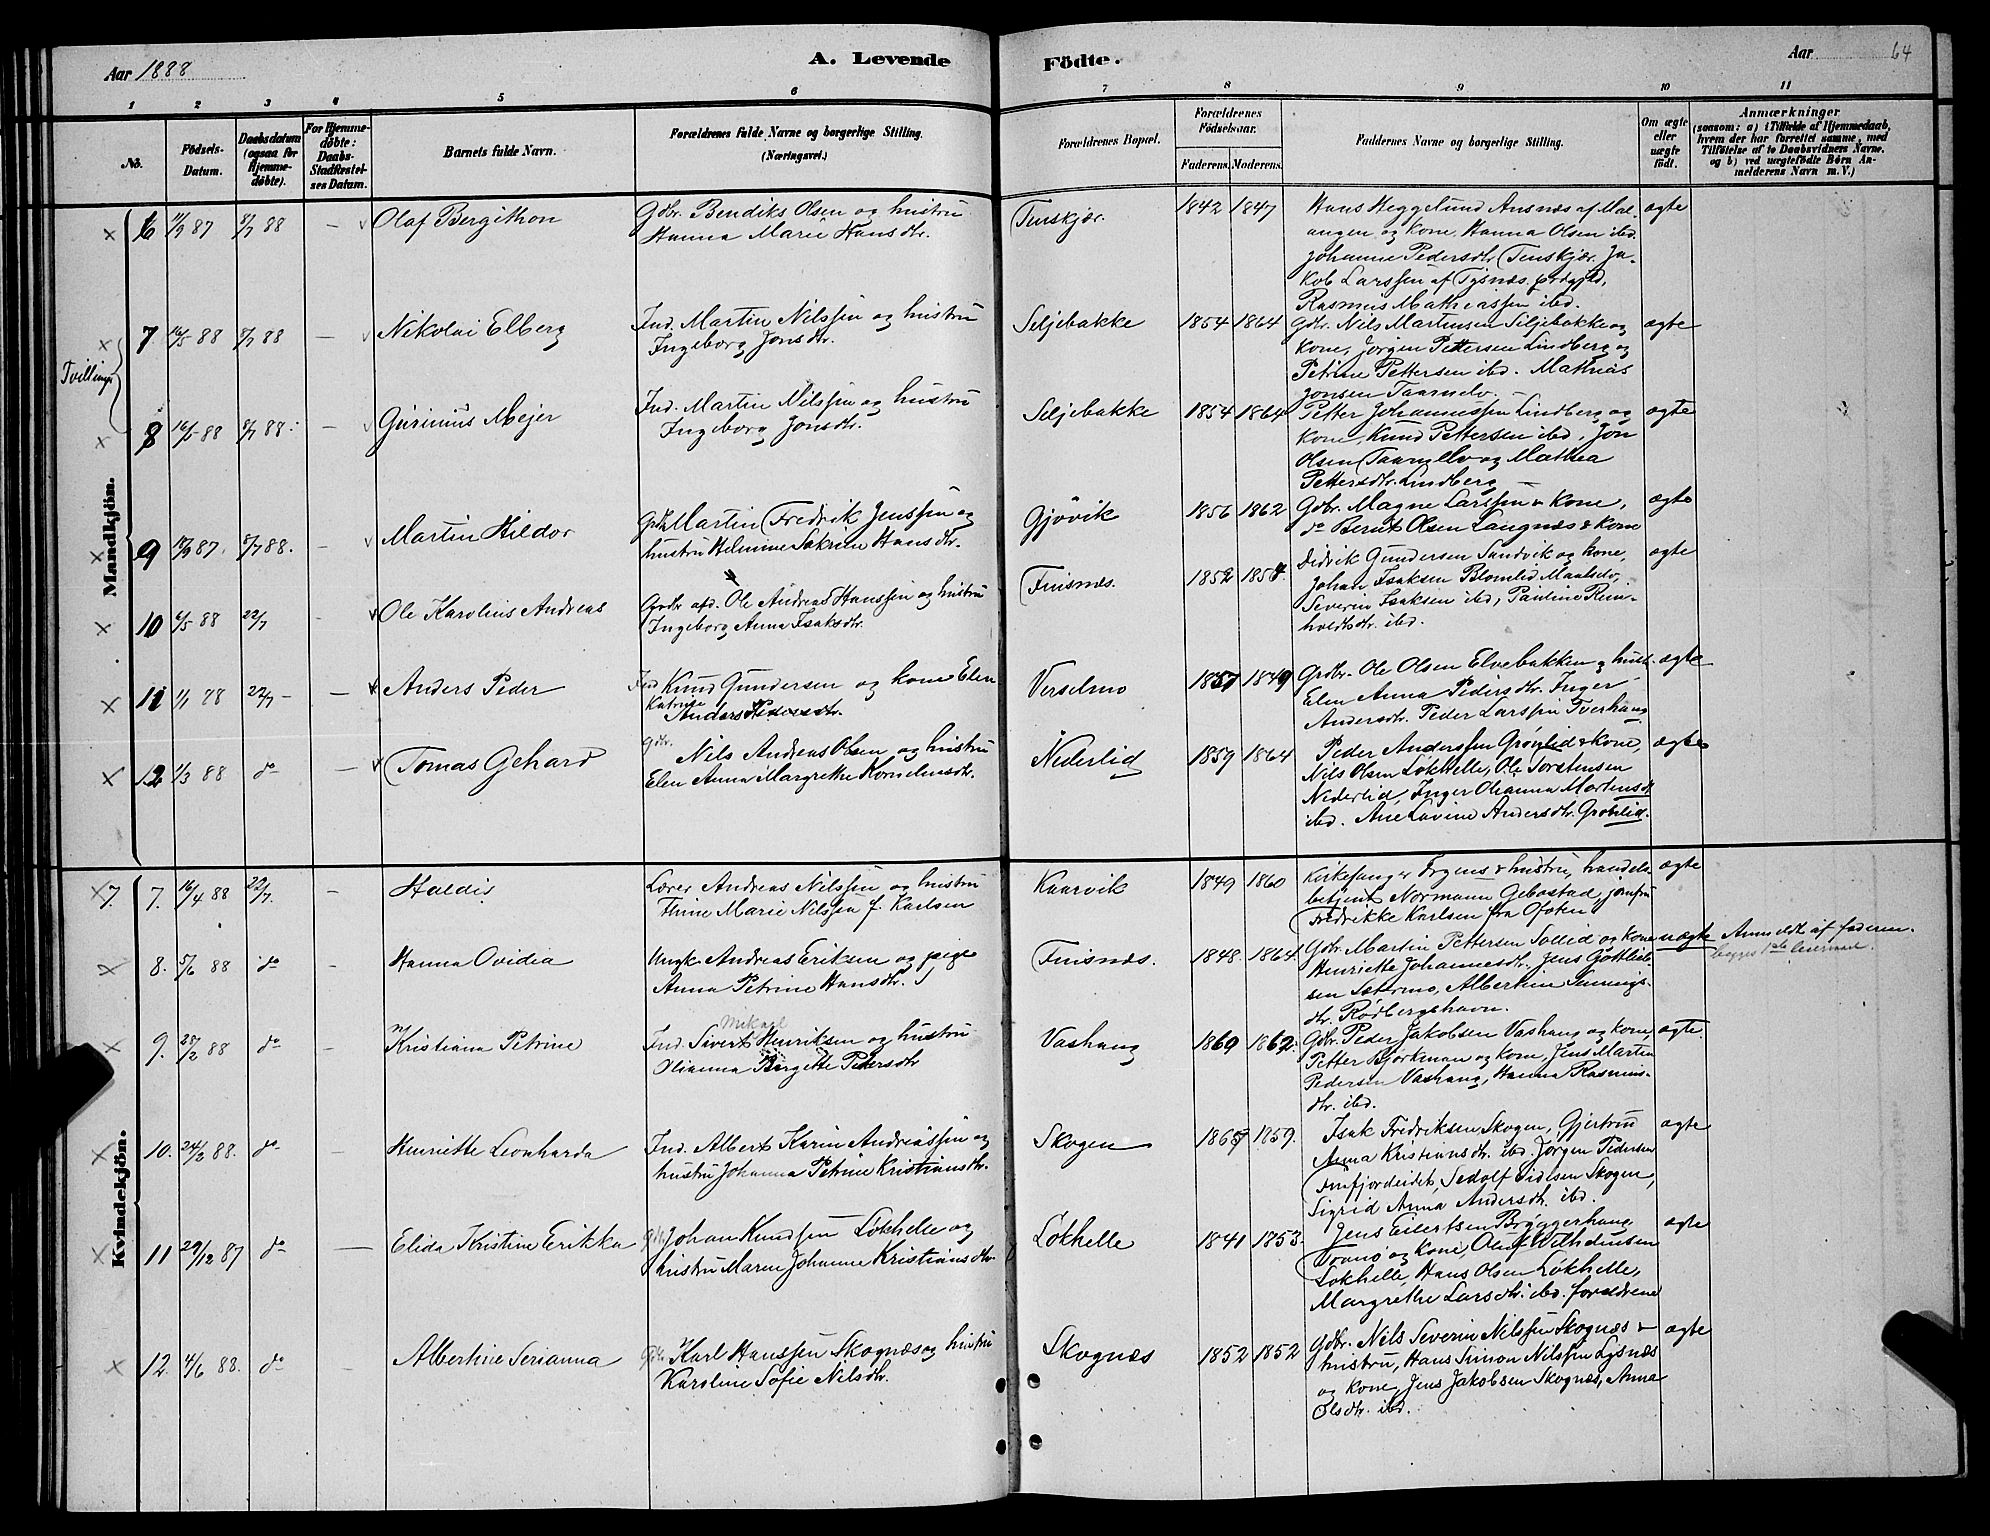 Aar 1888
A. Levende
Födte.
Aar 64
1 2 3 4 5 6 7 8 9 10 11
No.
Födsels-
Datum.
Daabsdatum
(ogsaa for
Hjemme-
döbte).
For Hjemme-
döbte:
Daabs-
Stadfæstel-
ses Datum.
Barnets fulde Navn.
Forældrenes fulde Navne og borgerlige Stilling.
(Næringsvei.)
Forældrenes Bopæl.
Forældrenes
Födselsaar.
Faderens. Moderens.
Faddernes Navne og borgerlige Stilling.
Om ægte
eller
uægte
födt.
Anmærkninger
(saasom: a) i Tilfælde af Hjemmedaab,
hvem der har forrettet samme, med
Tilföielse af to Daabsvidners Navne,
og b) ved uægtefödte Börn An-
melderens Navn m. V.)
Mandkjön.
6 11/9 87 8/7 88 — Olaf Bergithon
Gdbr. Bendiks Olsen og hustru
Hanna Marie Hansdtr.
Finskjær. 1842 1847
Hans Heggelund Ansnæs af Mal-
angen og kone, Hanna Olsen ibd.
Johanne Pedersdtr. Finskjær. Ja-
kob Larssen af Tysnæs prdgjld,
Rasmus Mathiassen ibd.
ægte
Tvillinger
7 16/5 88 8/7 88 — Nikolai Elberg
Ind. Martin Nilssen og hustru
Ingeborg Jonsdtr.
Seljebakke 1854 1864
Gdbr. Nils Martinsen Seljebakke og
kone, Jørgen Pettersen Lindberg og
Petrine Pettersen ibd. Mathias
Jonsen Taamelv.
ægte
8 16/5 88 8/7 88. — Gurinius Mejer
Ind. Martin Nilssen og hustru
Ingeborg Jonsdtr.
Seljebakke 1854 1864
Petter Johannessen Lindberg og
kone, Knud Pettersen ibd, Jon
Olsen Taamelv og Mathea
Pettersdtr. Lindberg
ægte
9 87. 8/7 88. — Martin Hildor
Martin Fredrik Jenssen og
hustru Helmine Hansdtr.
Gjøvik 1856 1862
Gdbr. Magne Larssen & kone,
do Bernt Olsen Laugnæs & kone
ægte
10 6/5 88 22/7 Ole Karolius Andreas
Ole Andreas Hanssen og hustru
Ingeborg Anna Isaksdtr.
Finsnæs. 1852 1854.
Didrik Gundersen Sandvik og kone,
Johan Isaksen Blomlid Maalselv,
Severin Isaksen ibd, Pauline Rein-
holdtsdtr. ibd.
ægte
11 1/1 88 22/7 — Anders Peder
Ind Knud Gundersen og kone Elen
Katrine
Andersdtr.
Verselmo 1857 1849
Grdbr. Ole Olsen Elvebakken & hust.
Elen Anna Pedersdtr. Inger
Andersdtr. Peder Larssen Tverhaug
ægte
12 1/3 88 do — Tomas Gehard
Gdbr. Nils Andreas Olsen og hustru
Elen Anna Margrethe Korneliusdtr.
Nederlid 1859 1864
Peder Anderssen Grønlid & kone,
Nils Olsen Løkhelle, Ole Torstensen
Nederlid, Inger Ohanna Mortensdtr
ibd. Ane Lavine Andersdtr. Grønlid.
ægte
Kvindekjön.
7. 7. 16/4 88 22/7. — Haldis
Lærer Andreas Nilssen og hustru
Thine Marie Nilssen f. Karlsen
Kaarvik 1849 1860
Kirkesanger Trygens & hustru, handels-
betjent Normann Gebostad, jomfru
Fredrikke Karlsen fra Ofoten
ægte
8. 5/6 88 do — Hanna Ovidia
Ungk. Andreas Eriksen og pige
Anna Petrine Hansdtr.
Finsnæs. 1848. 1864.
Gdbr. Martin Pettersen Sollid og kone
Henriette Johannesdtr. Jens Gottlieb-
sen Sætermo, Albertine Henings-
dtr. Rødbergshavn.
uægte Anmeldt af faderen.
begges 1ste leiermaal.
9. 28/2 88 do — Kristiana Petrine
Mikael
Ind. Sivert Henriksen og hustru
Olianna Birgitte Pedersdtr
Vashaug 1860 1862.
Gdbr. Peder Jakobsen Vashaug og kone,
Petter Bjørkman og kone, Jens Martin
Pedersen Vashaug, Hanna Rasmus-
dtr. ibd.
ægte.
10. 24/2 88. do — Henriette Leonharda
Ind. Albert Karin Andreassen og
hustru Johanna Petrine Kristiansdtr.
Skogen 1867 1859.
Isak Fredriksen Skogen, Gjertrud
Anna Kristiansdtr. ibd. Jørgen Pedersen
Finfjordeidet, Sedolf Didesen Skogen,
Sigrid Anna Andersdtr. ibd.
ægte
11 29/12 87 do — Elida Kristine Erikka
Gdbr Johan Knudsen Løkhelle og
hustru Maren Johanne Kristiansdtr.
Løkhelle 1841 1853.
Jens Eilertsen Brøggerhaug
Tranø og kone, Oluf Vilhelmsen
Løkhelle, Hans Olsen Løkhelle,
Margrethe Larsdtr. ibd. forældrene
ægte
12. 4/6 88. do — Albertine Serianna
Gdbr Karl Hanssen Skognæs og hustru
Karoline Sofie Nilsdtr.
Skognæs 1852 1852
Gdbr. Nils Severin Nilssen Skognæs &
hustru, Hans Simon Nilssen Lysnæs
og kone, Jens Jakobsen Skognæs, Anna
Olsdtr. ibd.
ægte